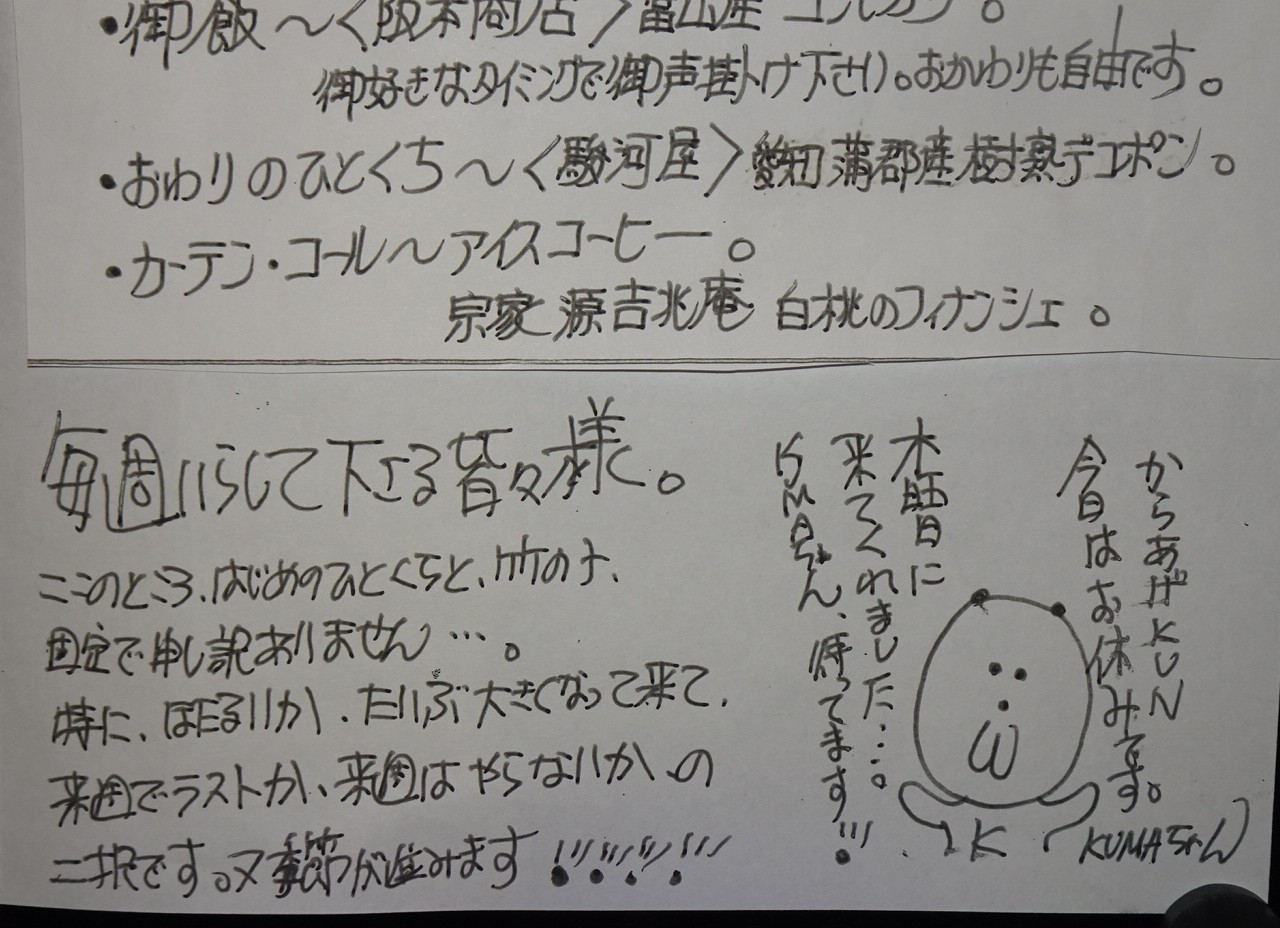 ・御飯〜〈阪本商店〉富山産 コシヒカリ。
御好きなタイミングで御声掛け下さい。おかわりも自由です。
・おわりのひとくち〜〈駿河屋〉愛知蒲郡産樹熟デコポン。
・カーテン・コール〜アイスコーヒー。
宗家 源吉兆庵 白桃のフィナンシェ。
毎週いらして下さる皆々様へ。
ここのところ、はじめのひとくちと、竹の子、
固定で申し訳ありません…。
特に、ほたるいか、だいぶ大きくなって来て、
来週でラストか、来週はやらないか、の
二択です。又季節が進みます!!!!
からあげKUN
今日はお休みです。
木曜日に
来てくれました…。
KUMAちゃん、待ってます!!!
K
KUMAちゃん